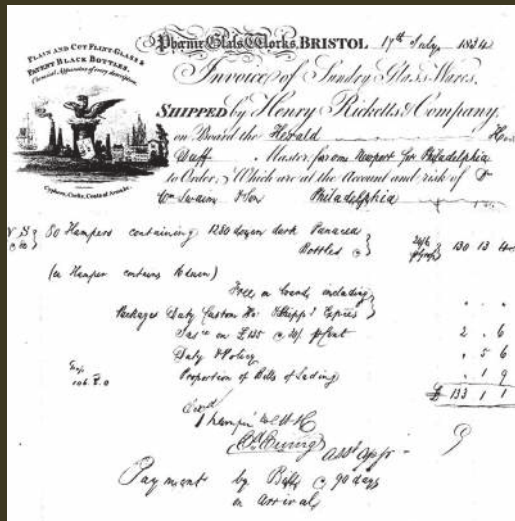 PLAIN AND CUT FLINT GLASS &
PATENT BLACK BOTTLES.
Chemical Apparatus of every description.
Cyphers, Crests, Coats of Arms &c.
Phœnix Glass Works, BRISTOL 17th July 1834
Invoice of Sundry Glass Wares.
SHIPPED by Henry Ricketts & Company,
on Board the Herald
Duff Master, from Newport for Philadelphia
to Order, Which are at the Account and risk of
Wm Swaim & Son Philadelphia
80 Hampers containing 1280 dozen dark Panacea
Bottles @ 130 13
(ea Hamper contains 16 dozen)
Free on board including
Packages Duty Custom Ho. & Shippg Expces
on £135 @ 2 . 6
Duty & Policy . 5 6
Proportion of Bills of Lading . 1 9
£ 133 1 1
1 hamper
Payment by Bills @ 90 days
on arrival